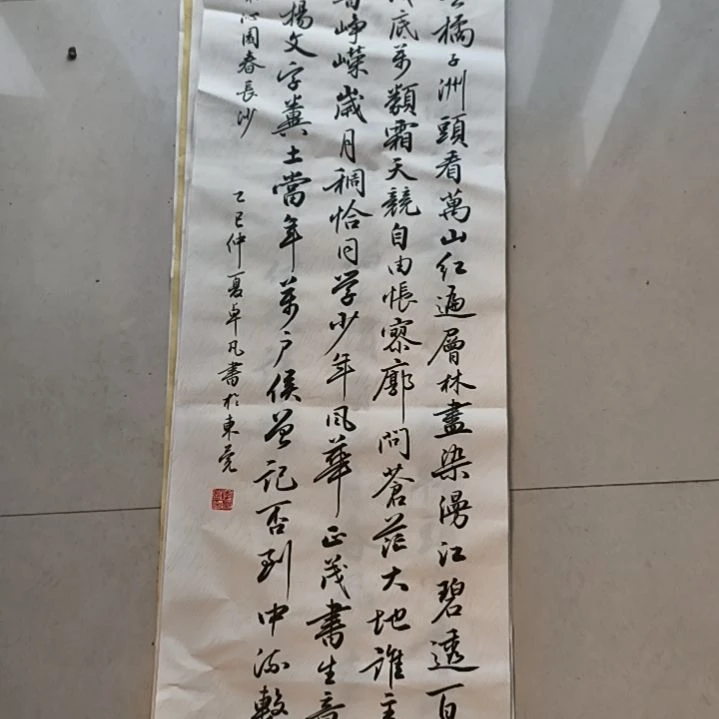 橘子洲頭看萬山红遍層林盡染漫江碧透百
底萬類霜天競自由悵寥廓問蒼茫大地誰主
崢嶸歲月稠恰同学少年风華正茂書生意
揚文字糞土當年萬户侯曾記否到中流擊
沁園春長沙
乙巳仲夏卓凡書於東莞